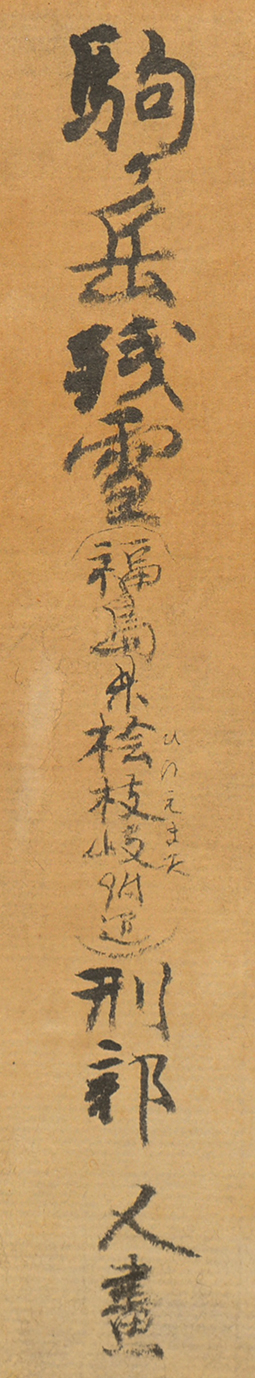 駒ヶ岳残雪(福島県桧枝岐附近)刑部 人画
ひのえまた